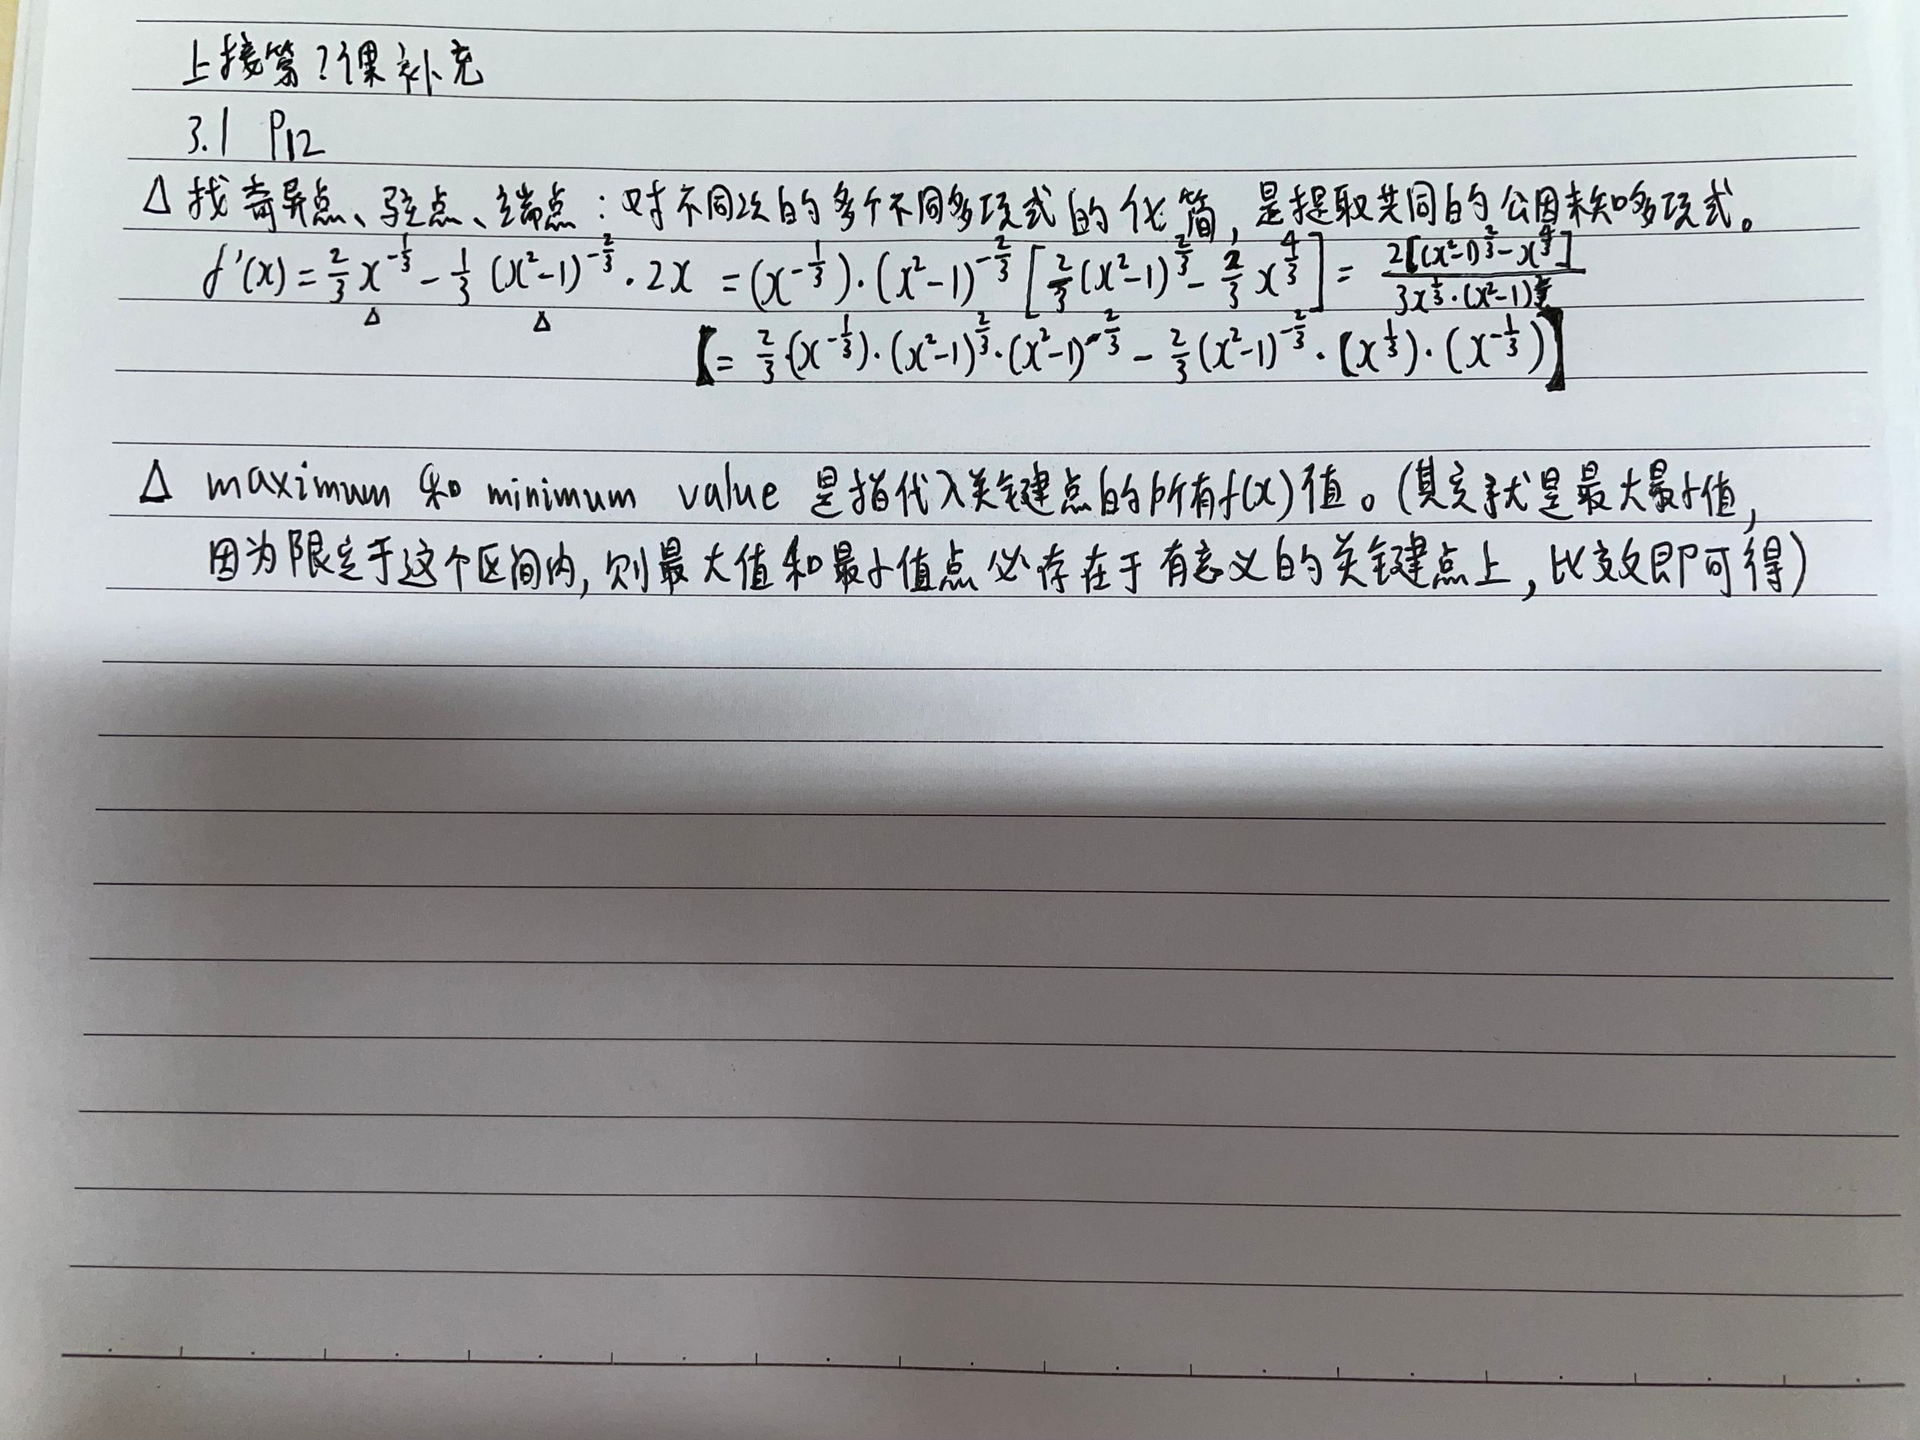 上接第7课补充
3.1 P12
Δ 找奇异点、驻点、端点：对不同次的多个不同多项式的化简，是提取共同的公因未知多项式。
f'(x) = 2/3 x^(-1/3) - 1/3 (x²-1)^(-2/3) · 2x = (x^(-1/3)) · (x²-1)^(-2/3) [2/3 (x²-1)^(2/3) - 2/3 x^(4/3)] = 2[(x²-1)^(2/3) - x^(4/3)] / 3x^(1/3) · (x²-1)^(2/3)
Δ Δ
【= 2/3 · (x^(-1/3)) · (x²-1)^(2/3) · (x²-1)^(-2/3) - 2/3 (x²-1)^(-2/3) · (x^(1/3)) · (x^(-1/3))】
Δ maximum 和 minimum value 是指代入关键点的所有f(x)值。(其实就是最大最小值，
因为限定于这个区间内，则最大值和最小值点必存在于有意义的关键点上，比较即可得)